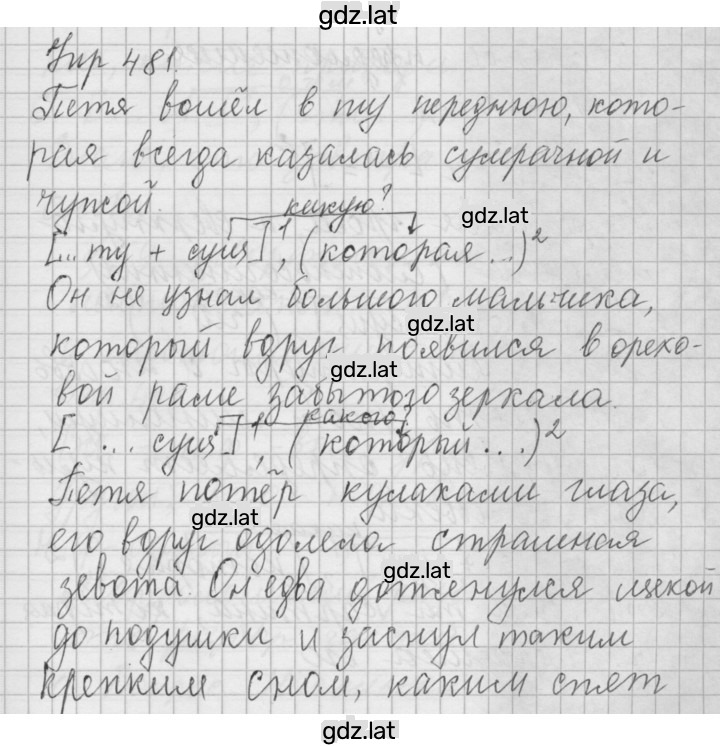 gdz.lat
Упр 481.
Петя вошёл в ту переднюю, кото-
рая всегда казалась сумрачной и
чужой.
какую?
gdz.lat
[... ту + сущ]¹, (которая...)²
gdz.lat
Он не узнал большого мальчика,
gdz.lat
который вдруг появился в орехо-
gdz.lat
вой раме забытого зеркала.
какого?
[ ... сущ]¹, (который ...)²
gdz.lat
Петя потёр кулаками глаза,
gdz.lat
его вдруг одолела страшная
gdz.lat
зевота. Он едва дотянулся щекой
до подушки и заснул таким
gdz.lat
крепким сном, каким спят
gdz.lat